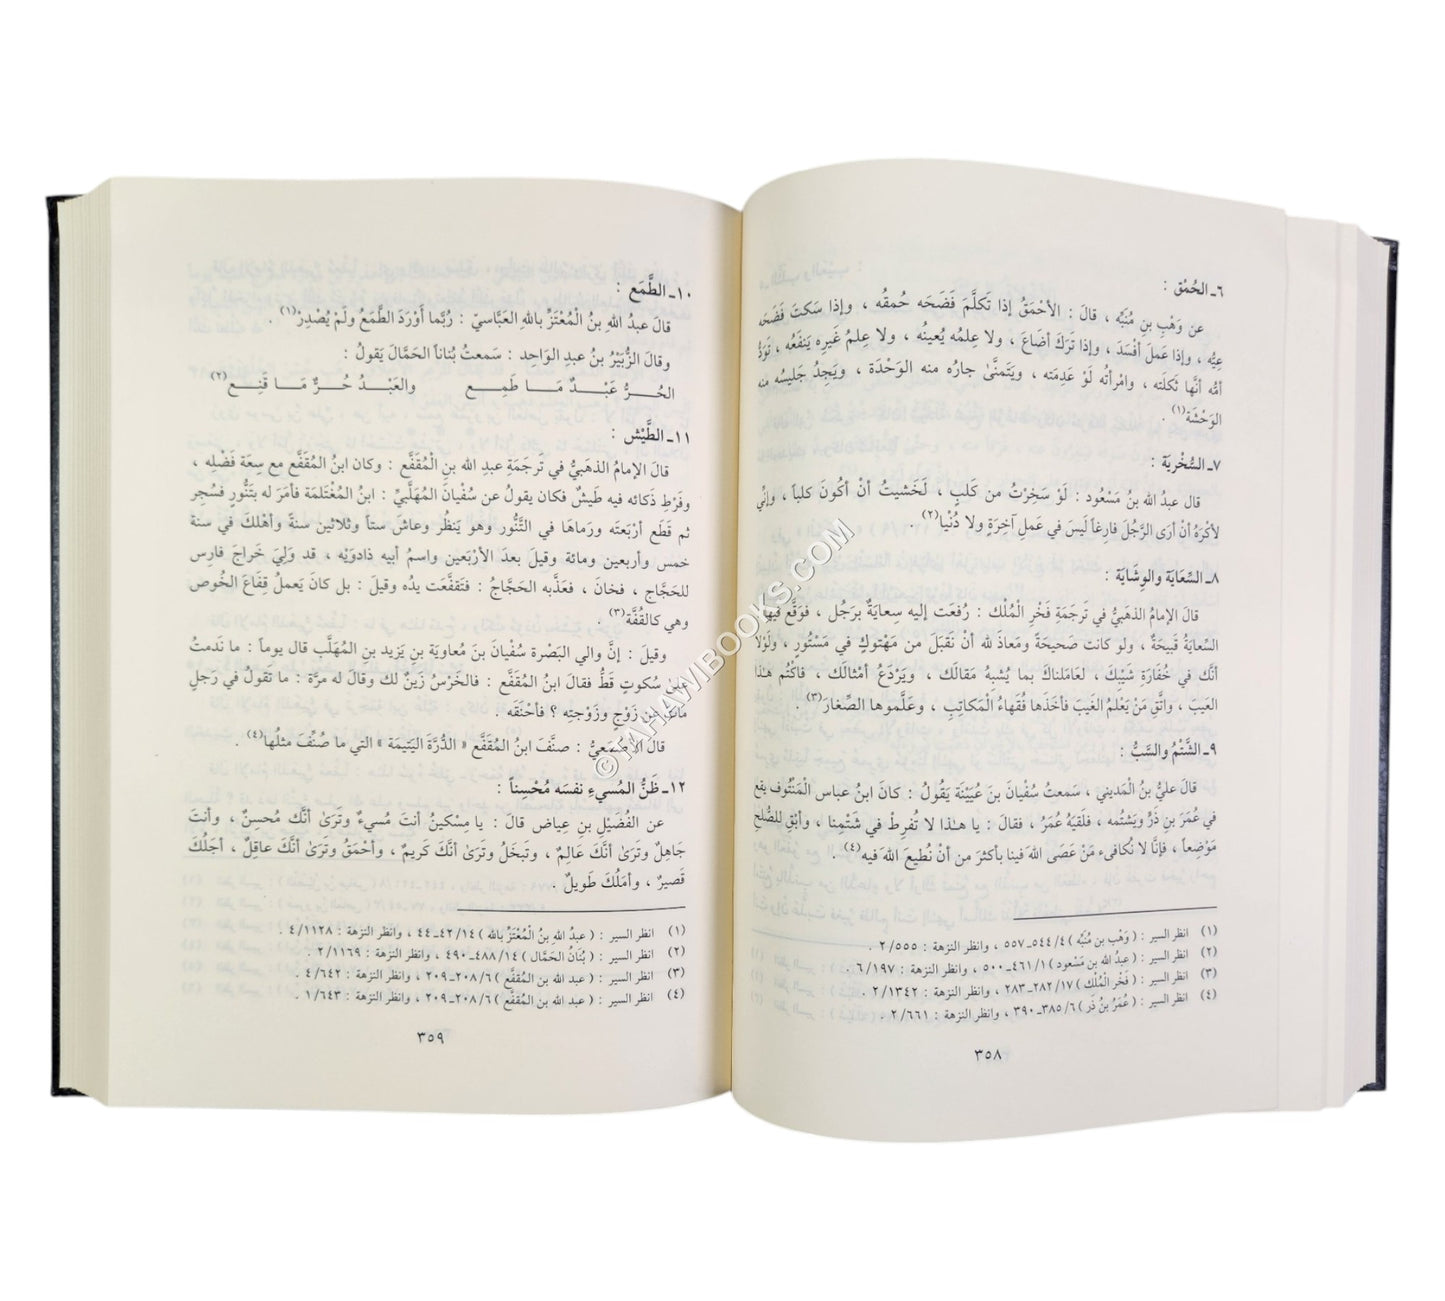 ٦ـ الحُمْق :
عن وَهْبِ بنِ مُنَبِّه ، قالَ : الأحْمَقُ إذا تَكلَّمَ فَضَحَه حُمقُه ، وإذا سَكتَ فَضَحَه
عِيُّه ، وإذا عَملَ أفْسَدَ ، وإذا تَركَ أضَاعَ ، ولا عِلمُه يُعينُه ، ولا عِلمُ غَيرِه يَنفَعُه ، تَوَدُّ
أمُّه أنَّها ثَكلَته ، وامْرأتُه لَوْ عَدِمَته ، ويَتَمنَّىٰ جارُه منه الوَحْدَة ، ويَجِدُ جَليسُه منه
الوَحْشَة(١) .
٧ـ السُّخْرِيَة :
قال عبدُ الله بنُ مَسْعُود : لَوْ سَخِرْتُ من كَلبٍ ، لَخَشيتُ أنْ أكُونَ كلباً ، وإنِّي
لأكْرَهُ أنْ أرَى الرَّجُلَ فارِغاً لَيسَ في عَملِ آخِرَةٍ ولا دُنْيا(٢) .
٨ـ السِّعَايَة والوِشَايَة :
قالَ الإمامُ الذهَبيُّ في تَرجَمَةِ فَخْرِ الْمُلْك : رُفعَت إليه سِعايةٌ برَجُل ، فوَقَّع فيها
السِّعايَةُ قَبيحَةٌ ، ولو كانت صَحيحَةً ومَعاذَ لله أنْ نَقبَلَ من مَهْتوكٍ في مَسْتُورٍ ، ولَوْلا
أنَّكَ في خُفارَةِ شَيْبِكَ ، لَعَامَلناكَ بما يُشبِهُ مَقالَكَ ، ويَرْدَعُ أمْثالَك ، فاكْتُم هٰذا
العَيبَ ، واتَّقِ مَنْ يَعْلمُ الغَيبَ فأخَذَها فُقهاءُ الْمَكاتِبِ ، وعَلَّموها الصِّغارَ(٣) .
٩ـ الشَّتْمُ والسَّبُّ :
قالَ عليُّ بنُ الْمَديني ، سَمعتُ سُفْيان بنَ عُيَيْنَة يَقُولُ : كانَ ابنُ عياش الْمَنْتُوف يقع
في عُمَرَ بنِ ذَرٍّ ويَشتُمه ، فلَقيَهُ عُمَرُ ، فقالَ : يا هٰذا لا تُفرِطْ في شَتْمِنا ، وأبْقِ للصُّلحِ
مَوْضِعاً ، فإنَّا لا نُكافىءُ مَنْ عَصَى اللهَ فينا بأكثرَ من أنْ نُطيعَ اللهَ فيه(٤) .
(١) انظر السير : ( وَهْب بن مُنَبِّه ) ٤/٥٤٤ـ٥٥٧ ، وانظر النزهة : ٢/٥٥٥ .
(٢) انظر السير : ( عبدُ الله بن مَسْعود ) ١/٤٦١ـ٥٠٠ ، وانظر النزهة : ٦/١٩٧ .
(٣) انظر السير : ( فَخْر الْمُلْك ) ١٧/٢٨٢ـ٢٨٣ ، وانظر النزهة : ٢/١٣٤٢ .
(٤) انظر السير : ( عُمَرُ بنُ ذَر ) ٦/٣٨٥ـ٣٩٠ ، وانظر النزهة : ٢/٦٦١ .
٣٥٨
١٠ـ الطَّمَع :
قالَ عبدُ اللهِ بنُ الْمُعْتَزِّ باللهِ العَبَّاسيّ : رُبَّما أَوْرَدَ الطَّمَعُ ولَمْ يُصْدِرْ(١) .
وقالَ الزُّبَيْرُ بنُ عبدِ الوَاحِد : سَمعتُ بُناناً الحَمَّالَ يَقولُ :
الحُـرُّ عَبْـدٌ مَـا طَمِـع والعَبْـدُ حُـرٌّ مَـا قَنِـع(٢)
١١ـ الطَّيْش :
قالَ الإمامُ الذهَبيُّ في تَرجَمَةِ عبدِ الله بنِ الْمُقَفَّع : وكان ابنُ المُقَفَّع مع سِعَة فَضْلِه ،
وفَرْطِ ذَكائه فيه طَيشٌ فكان يقولُ عن سُفْيانَ المُهَلَّبيِّ : ابنُ المُغْتَلمَة فأمَرَ له بتَنُّور فسُجِر
ثم قَطَع أرْبَعتَه ورَماهَا في التَّنُّور وهو يَنظُر وعاشَ ستاً وثلاثين سنةً وأهْلكَ في سنة
خمس وأربعين ومائة وقيلَ بعدَ الأرْبَعين واسمُ أبيه ذادوَيْه ، قد وَلِيَ خَراجَ فارِس
للحَجَّاج ، فخانَ ، فعَذَّبه الحَجَّاجُ : فتَقفَّعَت يدُه وقيلَ : بل كانَ يَعملُ قِفاعَ الخُوص
وهي كالقُفَّة(٣) .
وقيلَ : إنَّ والي البَصْرة سُفْيان بنَ مُعاويَة بنِ يَزيد بنِ المُهَلَّب قال يوماً : ما نَدمتُ
علىٰ سُكوتٍ قَطُّ فقالَ ابنُ المُقَفَّع : فالخَرْسُ زَينٌ لك وقالَ له مرَّة : ما تَقولُ في رَجلٍ
ماتَ عن زَوْجٍ وزَوْجتِه ؟ فأحْنَقَه .
قالَ الأصْمَعيُّ : صنَّفَ ابنُ المُقَفَّع « الدُّرَّة اليَتيمَة » التي ما صُنِّفَ مثلُها(٤) .
١٢ـ ظَنُّ المُسيءِ نفسَه مُحْسِناً :
عن الفُضَيْلِ بنِ عِياض قالَ : يا مِسْكينُ أنتَ مُسيءٌ وتَرىٰ أنَّك مُحسِنٌ ، وأنتَ
جَاهِلٌ وتَرىٰ أنَّكَ عَالِمٌ ، وتَبخَلُ وتَرىٰ أنَّكَ كَريمٌ ، وأحْمَقُ وتَرىٰ أنَّكَ عاقِلٌ ، أجَلُكَ
قَصيرٌ ، وأمَلُكَ طَويلٌ .
(١) انظر السير : ( عبدُ اللهِ بنُ المُعْتَزّ بالله ) ١٤/٤٢ـ٤٤ ، وانظر النزهة : ٤/١١٢٨ .
(٢) انظر السير : ( بُنَانُ الحَمَّال ) ١٤/٤٨٨ـ٤٩٠ ، وانظر النزهة : ٢/١١٦٩ .
(٣) انظر السير : ( عبد الله بن المُقَفَّع ) ٦/٢٠٨ـ٢٠٩ ، وانظر النزهة : ٤/٦٤٢ .
(٤) انظر السير : ( عبد الله بن المُقَفَّع ) ٦/٢٠٨ـ٢٠٩ ، وانظر النزهة : ١/٦٤٣ .
٣٥٩
©TAHAWIBOOKS.COM